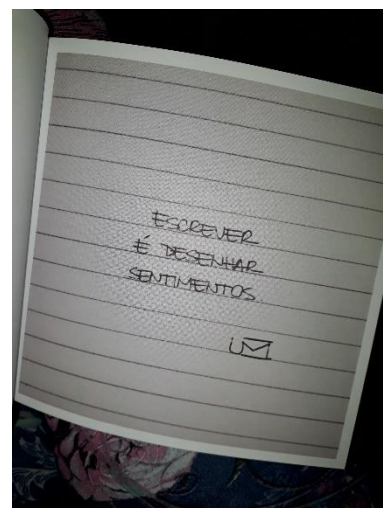 ESCREVER
É DESENHAR
SENTIMENTOS
UM